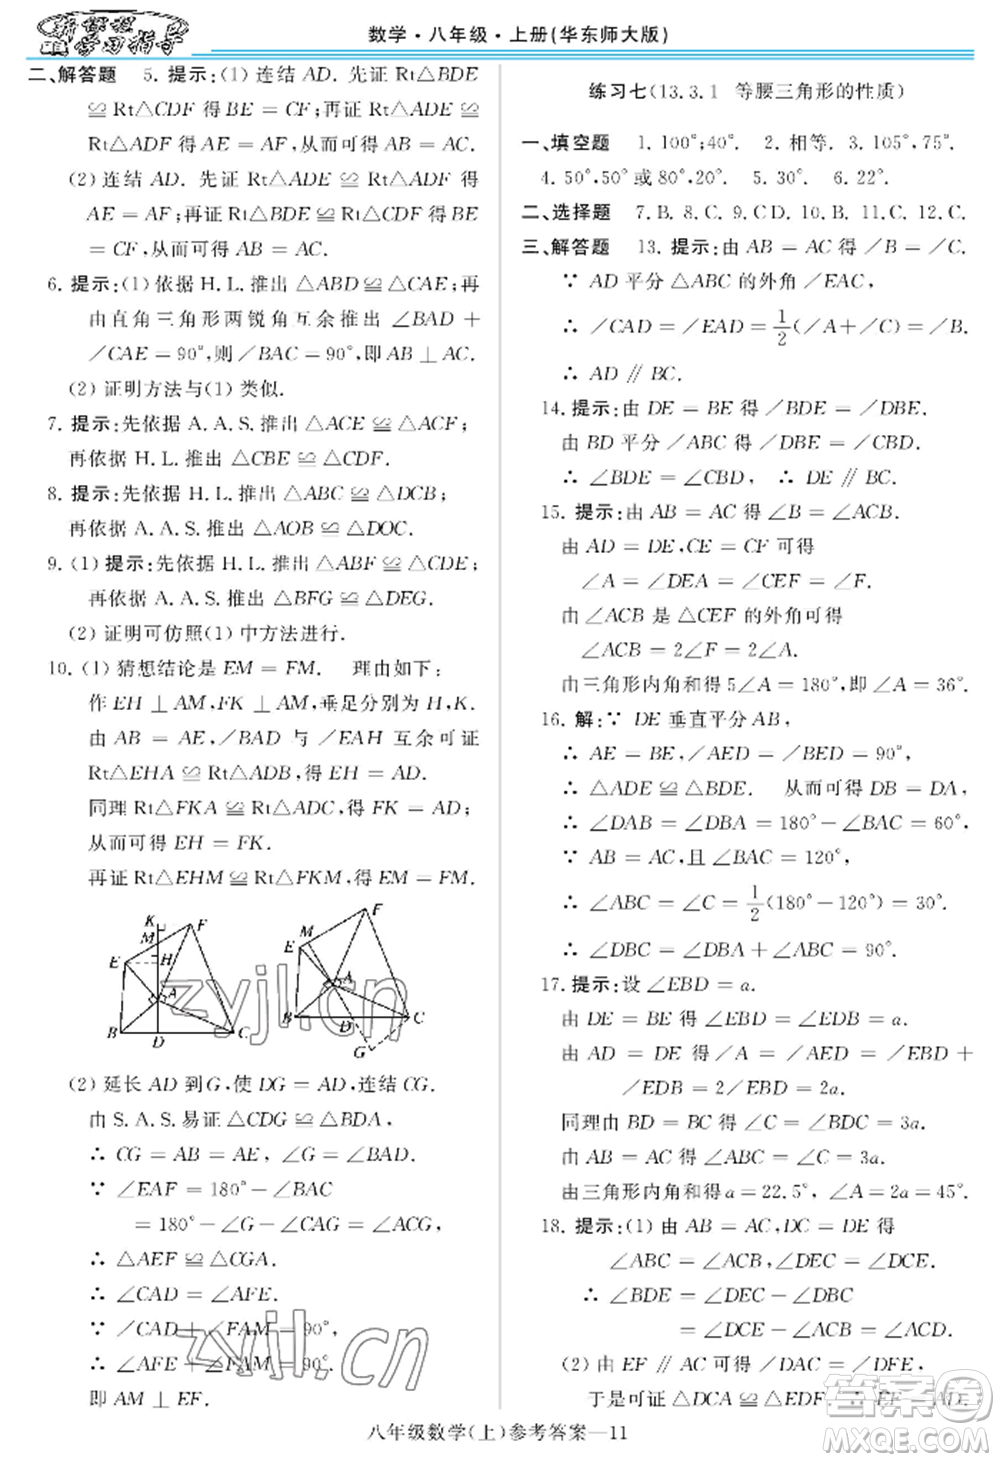 新课程
学习指导
数学·八年级·上册(华东师大版)
二、解答题 5. 提示:(1) 连结 AD. 先证 Rt△BDE
≌ Rt△CDF 得 BE = CF;再证 Rt△ADE ≌
Rt△ADF 得 AE = AF,从而可得 AB = AC.
(2) 连结 AD. 先证 Rt△ADE ≌ Rt△ADF 得
AE = AF;再证 Rt△BDE ≌ Rt△CDF 得 BE
= CF,从而可得 AB = AC.
6. 提示:(1) 依据 H. L. 推出 △ABD ≌ △CAE;再
由直角三角形两锐角互余推出 ∠BAD +
∠CAE = 90°,则∠BAC = 90°,即 AB ⊥ AC.
(2) 证明方法与(1) 类似.
7. 提示:先依据 A. A. S. 推出 △ACE ≌ △BDF;
再依据 H. L. 推出 △CBE ≌ △CDF.
8. 提示:先依据 H. L. 推出 △ABC ≌ △DCB;
再依据 A. A. S. 推出 △AOB ≌ △DOC.
9. (1) 提示:先依据 H. L. 推出 △ABF ≌ △CDE;
再依据 A. A. S. 推出 △BFG ≌ △DEG.
(2) 证明可仿照(1) 中方法进行.
10. (1) 猜想结论是 EM = FM. 理由如下:
作 EH ⊥ AM,FK ⊥ AM,垂足分别为 H、K.
由 AB = AE,∠BAD 与 ∠EAH 互余可证
Rt△EHA ≌ Rt△ADB,得 EH = AD.
同理 Rt△FKA ≌ Rt△ADC,得 FK = AD;
从而可得 EH = FK.
再证 Rt△EHM ≌ Rt△FKM,得 EM = FM.
K M F E H A B D C
F M E A B D C G
(2) 延长 AD 到 G,使 DG = AD,连结 CG.
由 S. A. S. 易证 △CDG ≌ △BDA,
∴ CG = AB = AE,∠G = ∠BAD.
∵ ∠EAF = 180° − ∠BAC
= 180° − ∠G − ∠CAG = ∠ACG,
∴ △AEF ≌ △CGA.
∴ ∠CAD = ∠AFE.
∵ ∠CAD + ∠FAM = 90°,
∴ ∠AFE + ∠FAM = 90°.
即 AM ⊥ EF.
练习七(13.3.1 等腰三角形的性质)
一、填空题 1. 100°;40°. 2. 相等. 3. 105°,75°.
4. 50°,50° 或 80°,20°. 5. 30°. 6. 22°.
二、选择题 7. B. 8. C. 9. C D. 10. B. 11. C. 12. C.
三、解答题 13. 提示:由 AB = AC 得 ∠B = ∠C.
∵ AD 平分 △ABC 的外角 ∠EAC,
∴ ∠CAD = ∠EAD = 1/2(∠A + ∠C) = ∠B.
∴ AD ∥ BC.
14. 提示:由 DE = BE 得 ∠BDE = ∠DBE.
由 BD 平分 ∠ABC 得 ∠DBE = ∠CBD.
∴ ∠BDE = ∠CBD, ∴ DE ∥ BC.
15. 提示:由 AB = AC 得 ∠B = ∠ACB.
由 AD = DE,CE = CF 可得
∠A = ∠DEA = ∠CEF = ∠F.
由 ∠ACB 是 △CEF 的外角可得
∠ACB = 2∠F = 2∠A.
由三角形内角和得 5∠A = 180°,即 ∠A = 36°.
16. 解:∵ DE 垂直平分 AB,
∴ AE = BE,∠AED = ∠BED = 90°,
∴ △ADE ≌ △BDE. 从而得 DB = DA,
∴ ∠DAB = ∠DBA = 180° − ∠BAC = 60°.
∵ AB = AC,且 ∠BAC = 120°,
∴ ∠ABC = ∠C = 1/2(180° − 120°) = 30°.
∴ ∠DBC = ∠DBA + ∠ABC = 90°.
17. 提示:设 ∠EBD = a.
由 DE = BE 得 ∠EBD = ∠EDB = a.
由 AD = DE 得 ∠A = ∠AED = ∠EBD +
∠EDB = 2∠EBD = 2a.
同理由 BD = BC 得 ∠C = ∠BDC = 3a.
由 AB = AC 得 ∠ABC = ∠C = 3a.
由三角形内角和得 a = 22.5°,∠A = 2a = 45°.
18. 提示:(1) 由 AB = AC,DC = DE 得
∠ABC = ∠ACB,∠DEC = ∠DCE.
∴ ∠BDE = ∠DEC − ∠DBC
= ∠DCE − ∠ACB = ∠ACD.
(2) 由 EF ∥ AC 可得 ∠DAC = ∠DFE,
于是可证 △DCA ≌ △EDF,∴ EF = AD.
八年级数学(上)参考答案—11
zyjl.cn
zyjl.cn
答案圈
MXQE.COM